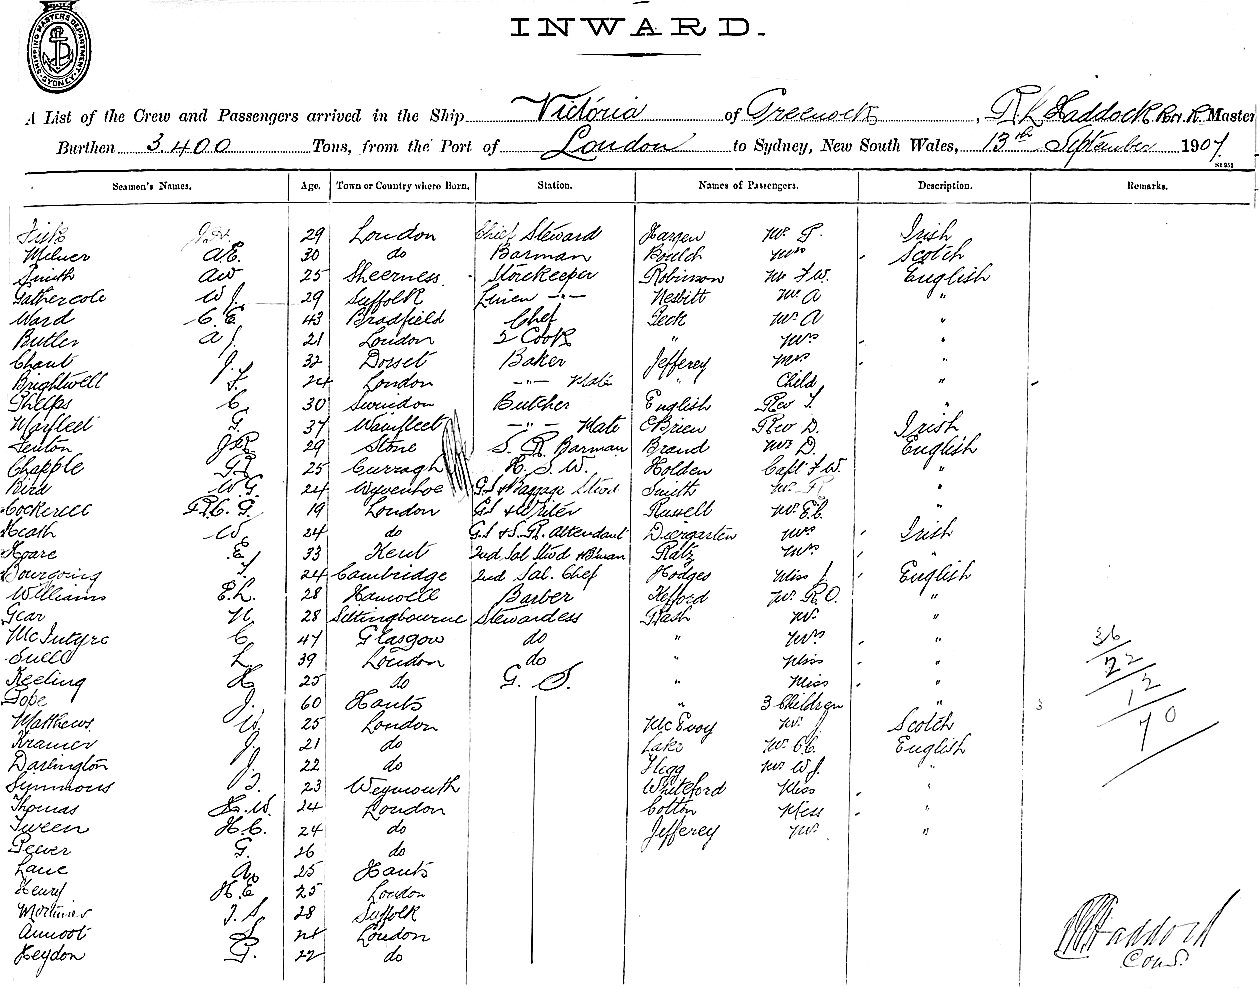 SHIPPING MASTERS DEPARTMENT SYDNEY
INWARD.
A List of the Crew and Passengers arrived in the Ship Victoria of Greenock, Haddock R.N.R. Master
Burthen 3.400 Tons, from the Port of London to Sydney, New South Wales, 13th September 1907
Seamen's Names. Age. Town or Country where Born. Station. Names of Passengers. Description. Remarks.
29 London Chief Steward Hazen Mr T. Irish
Milner A.E. 30 do Barman Bouldh Mrs Scotch
Smith AW 25 Sheerness Storekeeper Robinson Mr F.W. English
Gathercole W J. 29 Suffolk Linen -"- Nesbitt Mr A "
Ward C. E. 43 Bradfield Chef Mr A "
Butler A J. 21 London 2 Cook " Mrs "
Chant J. 32 Dorset Baker Jefferey Mrs "
Brightwell F. 24 London -"- Mate " Child "
Phelps C. 30 Swindon Butcher English Rev T. "
Wayfleet G. 37 Wainfleet -"- Mate O'Brien Rev D. Irish
Fenton J.R. 29 Stone S. R. Barman Brand Mr D. English
Chapple 25 Curragh H. S. W. Holden Capt F.W. "
Bird W.G. 24 Wyvenhoe G.S & Baggage Stwd Smith Mr "
Cockerell F.R.C. G. 19 London G.S & Writer Russell Mr E.C. "
Heath W. 24 do G.S & S.R. Attendant Diergarten Mrs Irish
Hoare E. 33 Kent 2nd Sal Stwd & Bman Ratz Mrs "
Bourgoing T. 24 Cambridge 2nd Sal. Chef Hodges Miss J. English
Williams E.L. 28 Hanwell Barber Kefford Mr R.O. "
Gear N. 28 Sittingbourne Stewardess Rash Mr "
McIntyre C. 47 Glasgow do " Mrs "
L. 39 London do " Miss "
Keeling H. 25 do G. S. " Miss "
J. 60 Hants " 3 Children " 3
Matthews W. 25 London McEvoy Mr J Scotch
Kramer J. 21 do Lake Mr C.C. English
Darlington J. 22 do Hegg Mr W.J.
Simmons B. 23 Weymouth Whiteford Miss "
Thomas H.W. 24 London Cotton Miss "
Tween H.C. 24 do Jefferey Mr "
G. 26 do
Lane A. 25 Hants
Henry H.E. 25 London
J.S. 28 Suffolk
S. 24 London
Heydon G. 22 do
36
22
12
70
Haddock
Com.